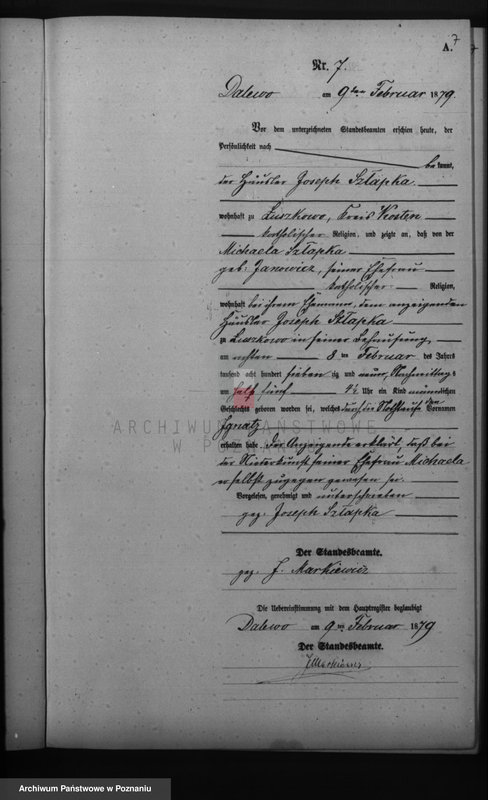 7
A.
Nr. 7.
Dalewo am 9ten Februar 1879.
Vor dem unterzeichneten Standesbeamten erschien heute, der
Persönlichkeit nach
bekannt,
der Häusler Joseph Szłapka
wohnhaft zu Łuszkowo, Kreis Kosten
katholischer Religion, und zeigte an, daß von der
Michaela Szłapka
geb: Janowicz, seiner Ehefrau
katholischer Religion,
wohnhaft bei ihrem Ehemann, dem anzeigenden
Häusler Joseph Szłapka
zu Łuszkowo in seiner Behausung
am achten 8ten Februar des Jahres
tausend acht hundert siebenzig und neun, Nachmittags
um halb fünf 4½ Uhr ein Kind männlichen
Geschlechts geboren worden sei, welches durch die Nothtaufe den Vornamen
Ignatz
erhalten habe. Der Anzeigende erklärt, daß bei
der Niederkunft seiner Ehefrau Michaela
er selbst zugegen gewesen sei.
Vorgelesen, genehmigt und unterschrieben
gez. Joseph Szłapka
Der Standesbeamte.
gez. J. Markiewicz
Die Uebereinstimmung mit dem Hauptregister beglaubigt
Dalewo am 9ten Februar 1879
Der Standesbeamte.
J Markiewicz
ARCHIWUM PAŃSTWOWE
W POZNANIU
Archiwum Państwowe w Poznaniu